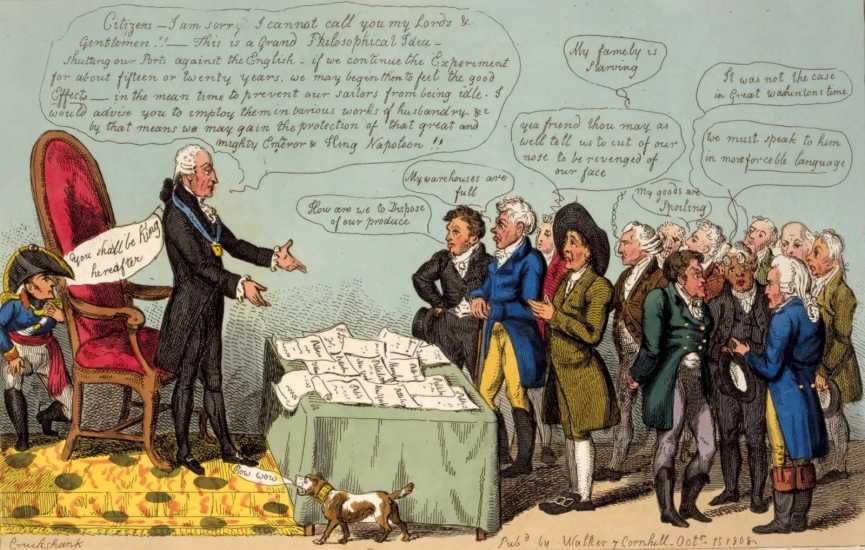 Citizens – I am sorry I cannot call you my Lords &
Gentlemen!! – This is a Grand Philosophical Idea –
shutting our Ports against the English – if we continue the Experiment
for about fifteen or twenty years, we may begin then to feel the good
Effects – in the mean time to prevent our sailors from being idle – I
would advise you to employ them in various works of husbandry &c
by that means we may gain the protection of that great and
mighty Emperor & King Napoleon!!
You shall be King
hereafter
How are we to Dispose
of our produce
My warehouses are
full
My famely is
Starving
yea friend thou may as
well tell us to cut of our
nose to be revenged of
our face
My goods are
Spoiling
It was not the case
in Great Washintons time
We must speak to him
in more forceble language
Bow wow
Cruikshank
Pubd by Walker 7 Cornhill – Octr 15 1808